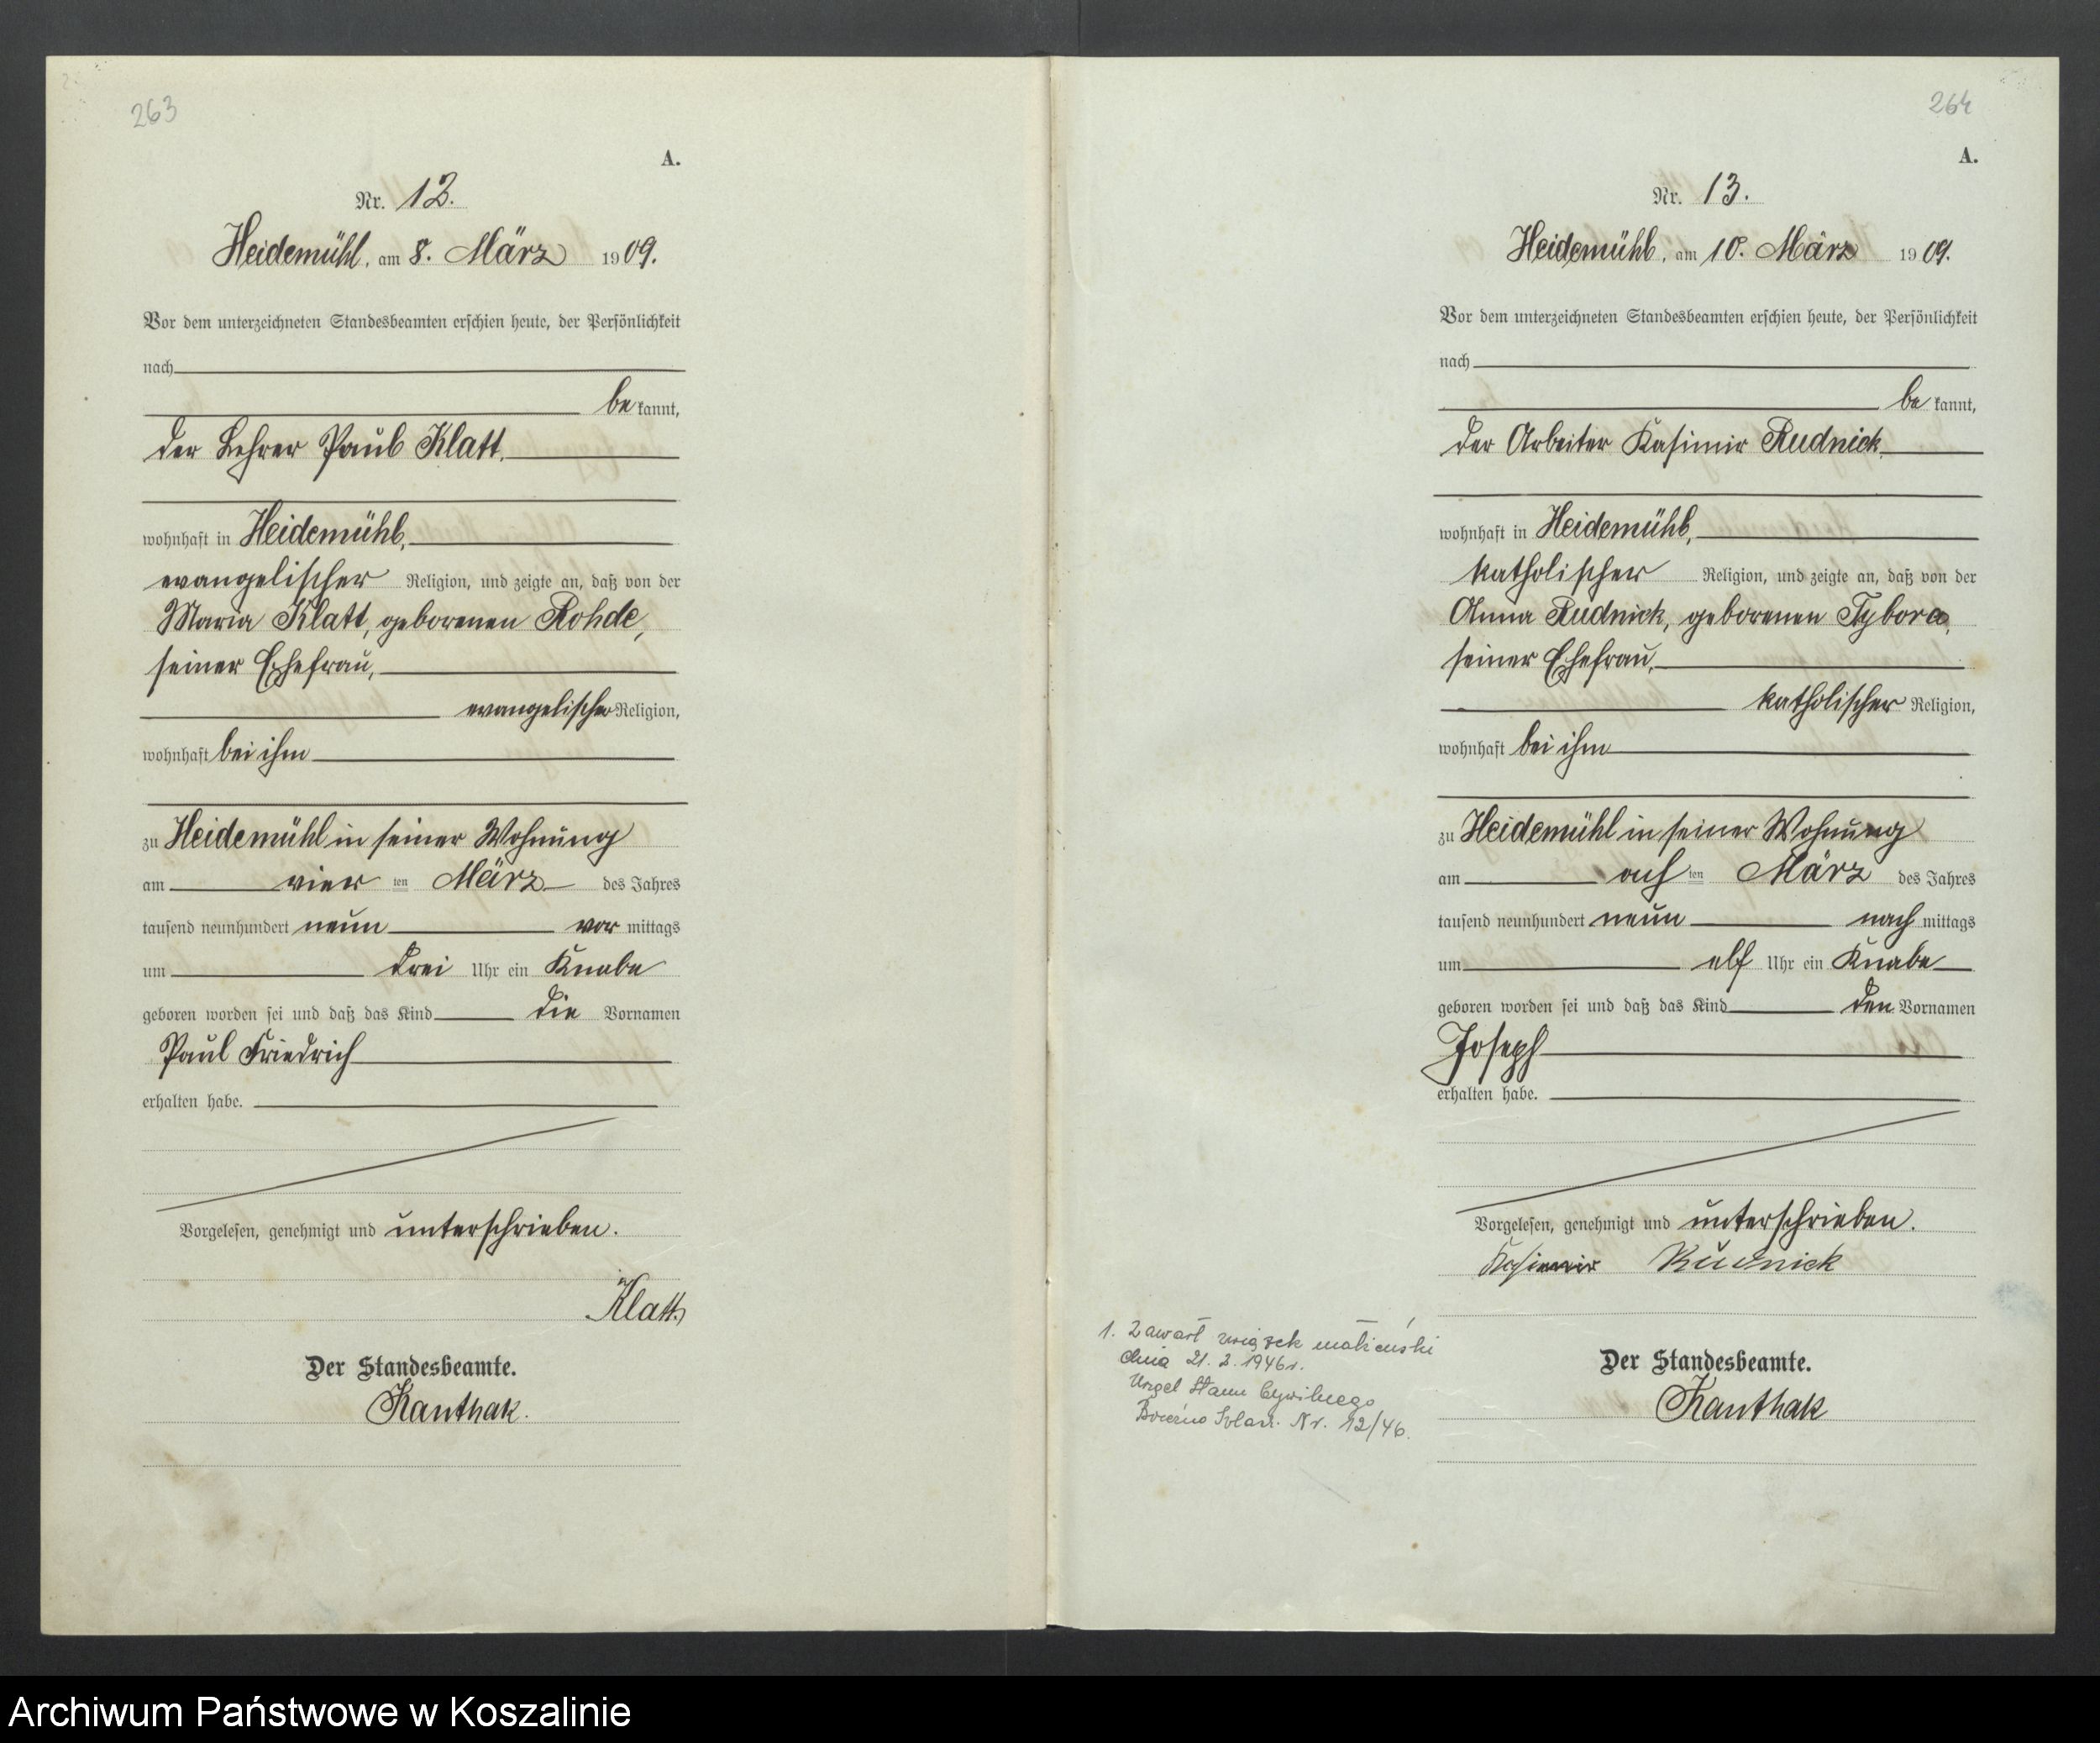 263
A.
Nr. 12.
Heidemühl, am 8. März 1909.
Vor dem unterzeichneten Standesbeamten erschien heute, der Persönlichkeit
nach
be kannt,
der Lehrer Paul Klatt,
wohnhaft in Heidemühl,
evangelischer Religion, und zeigte an, daß von der
Maria Klatt, geborenen Rohde,
seiner Ehefrau,
evangelischer Religion,
wohnhaft bei ihm
zu Heidemühl in seiner Wohnung
am vier ten März des Jahres
tausend neunhundert neun vor mittags
um drei Uhr ein Knabe
geboren worden sei und daß das Kind die Vornamen
Paul Friedrich
erhalten habe.
Vorgelesen, genehmigt und unterschrieben.
Klatt
Der Standesbeamte.
Kanthak.
264
A.
Nr. 13.
Heidemühl, am 10. März 1909.
Vor dem unterzeichneten Standesbeamten erschien heute, der Persönlichkeit
nach
be kannt,
der Arbeiter Kasimir Rudnick,
wohnhaft in Heidemühl,
katholischer Religion, und zeigte an, daß von der
Anna Rudnick, geborenen Tybora,
seiner Ehefrau,
katholischer Religion,
wohnhaft bei ihm
zu Heidemühl in seiner Wohnung
am ach ten März des Jahres
tausend neunhundert neun nach mittags
um elf Uhr ein Knabe
geboren worden sei und daß das Kind den Vornamen
Joseph
erhalten habe.
Vorgelesen, genehmigt und unterschrieben.
Kasimir Rudnick
1. Zawarł związek małżeński
dnia 21. 2. 1946 r.
Urząd Stanu Cywilnego
Nr. 12/46.
Der Standesbeamte.
Kanthak
Archiwum Państwowe w Koszalinie